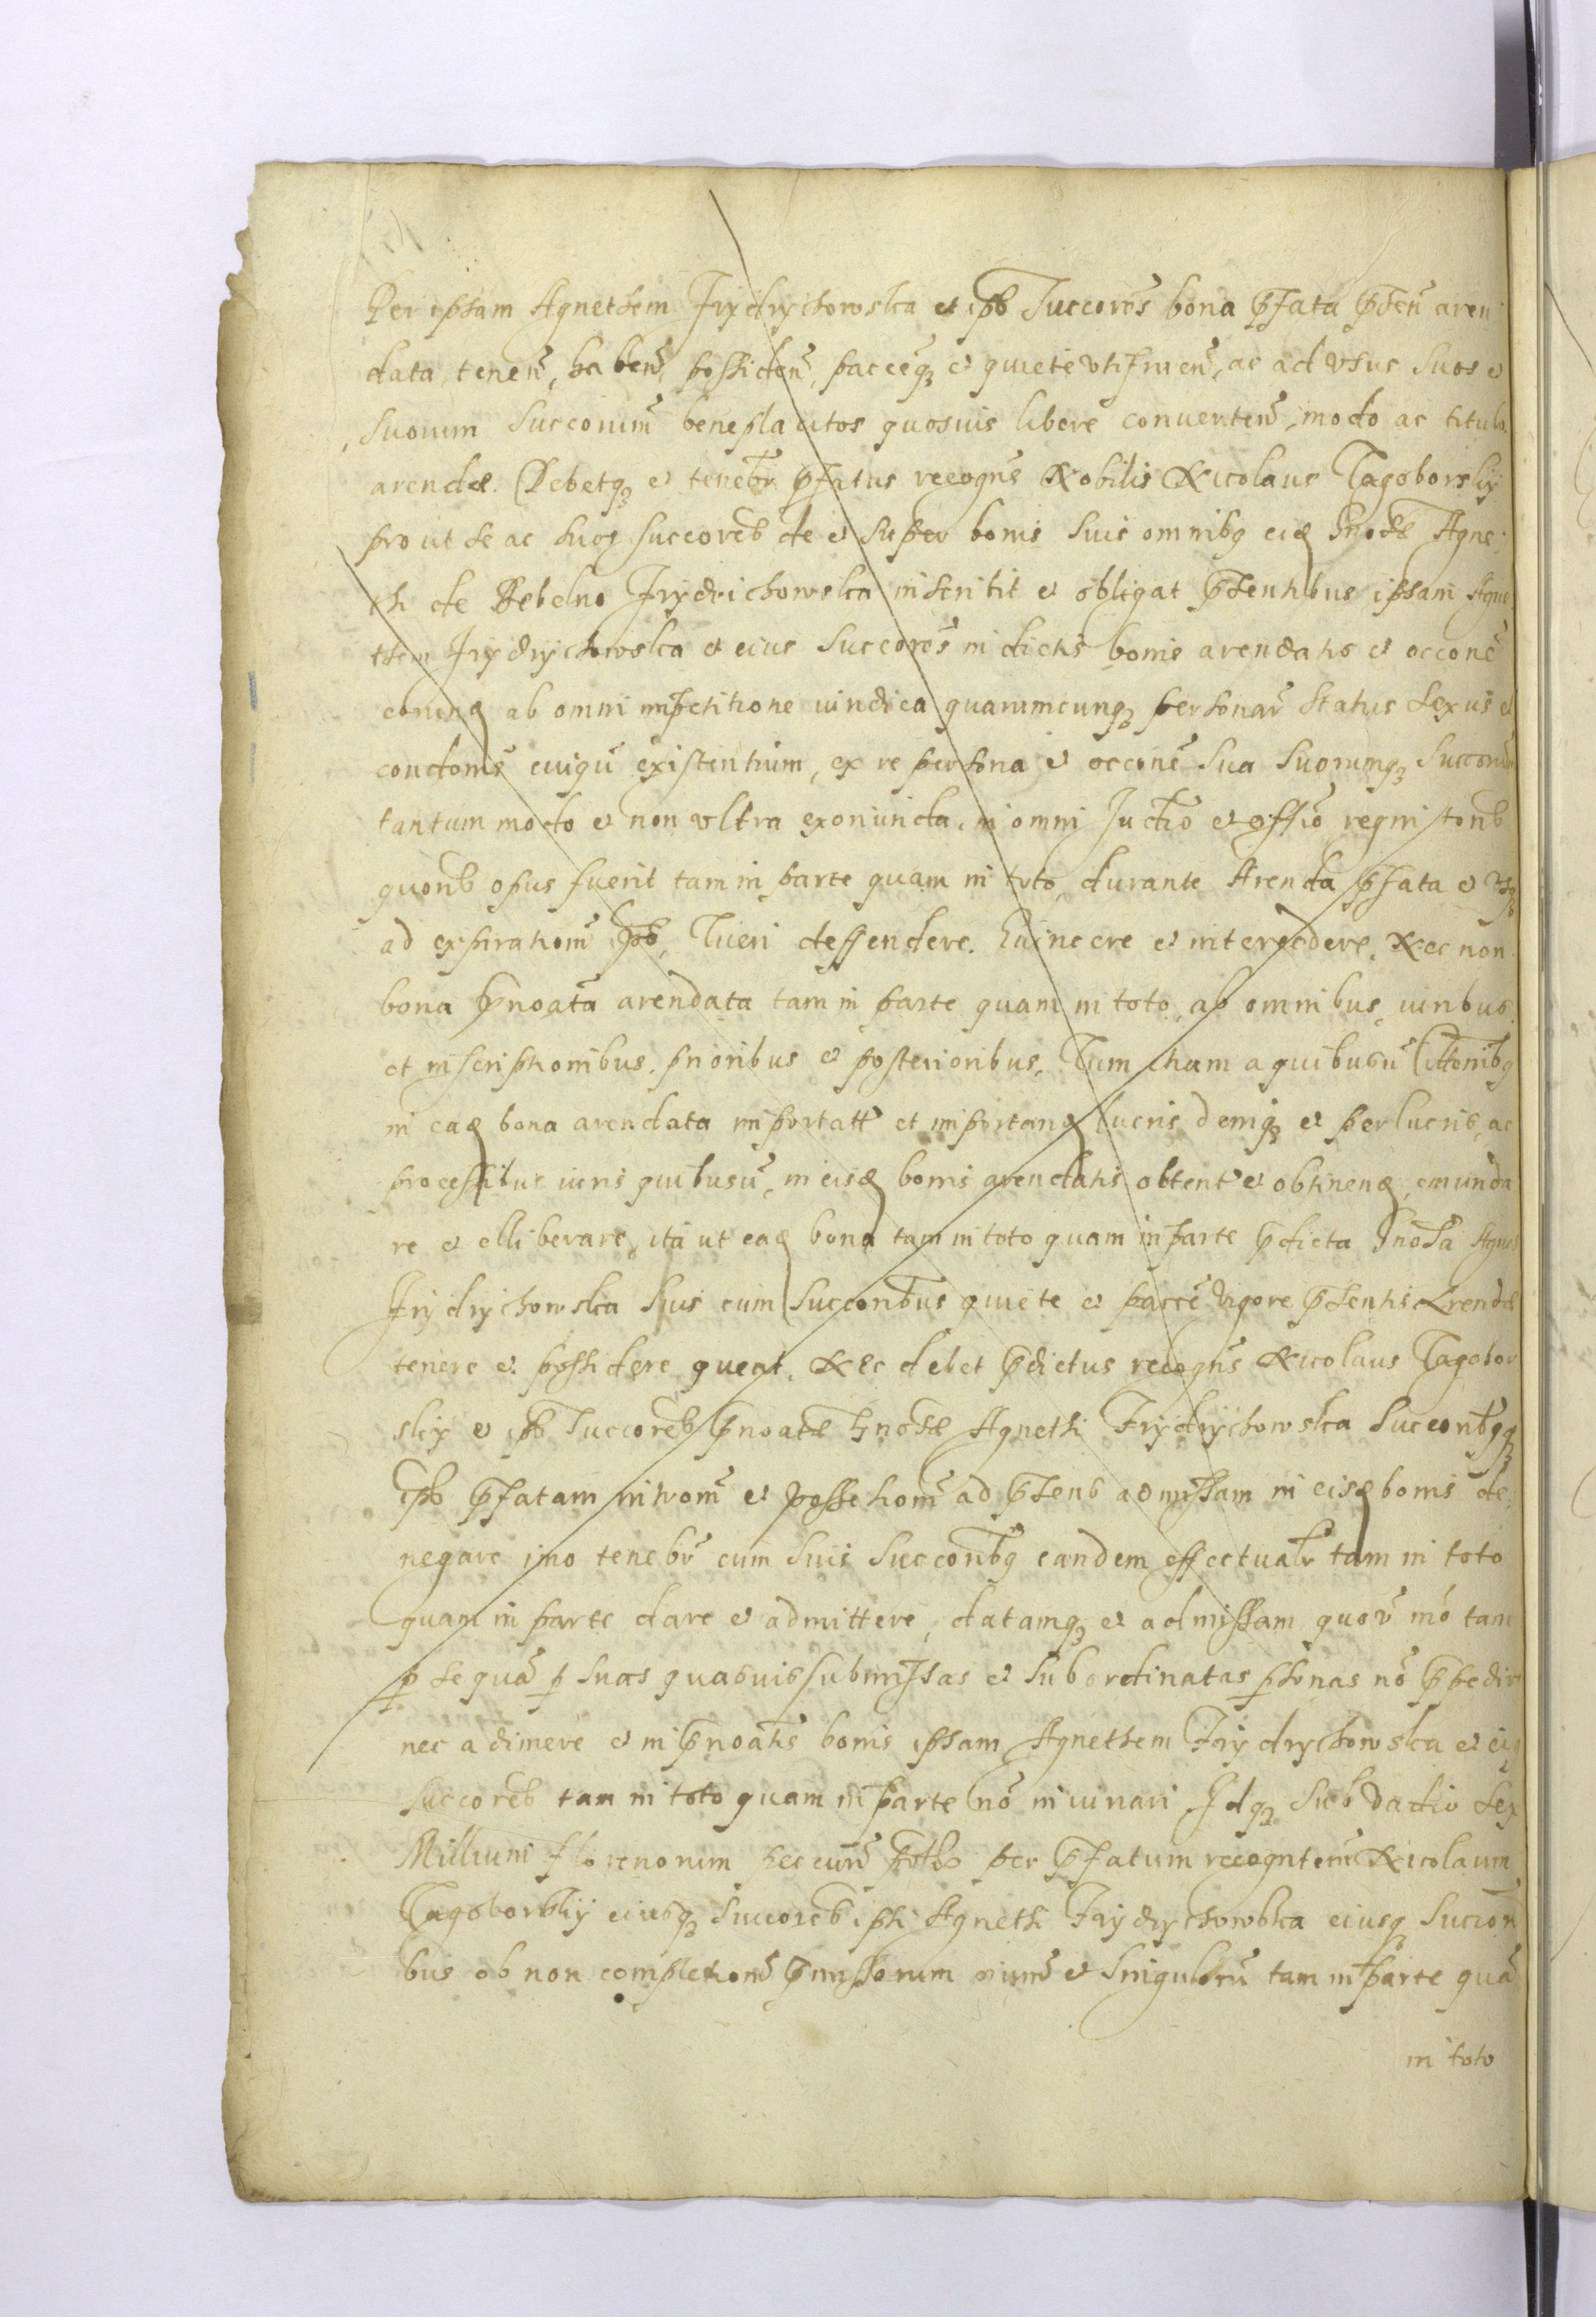 Per ipsam Agnethem Frydrychowska et ips Succores bona pfata psen aren
data, tenen, haben, possiden, pacceqꝫ et quiete utifruen, ac ad usus suos et
suorum Succorum beneplacitos quosuis libere conuerten, modo ac titulo
arendæ. Debetqꝫ et tenebr pfatus recogns Nobilis Nicolaus Tagoborsky
prout se ac suos succoreb de et super bonis suis omnibq eid Gnosæ Agne
thi de Bebelno Frydrichowska inscribit et obligat psentibus ipsam Agne
them Frydrychowska et eius Succores in dictis bonis arendatis et occone
eorund ab omni impetitione iuridica quarumcunqꝫ personar status sexus et
condonis cuiqu existentium, ex re persona et occone sua suorumqꝫ Succorum
tantum modo et non ultra exoriunda, in omni Judio et offio regni foro
quorib opus fuerit tam in parte quam in toto, durante Arenda pfata et usqꝫ
ad expirationem ips, Tueri deffendere. Euincere et intercedere. Nec non
bona pnoata arendata tam in parte quam in toto, ab omnibus, iuribus
et inscriptionibus, prioribus et posterioribus, Tum etiam a quibusu
in ead bona arendata importatt et importand lucris deniqꝫ et perlucris, ac
processibus iuris quibusu, in eisd bonis arendatis obtent et obtinend, emunda
re et elliberare, ita ut ead bona tam in toto quam in parte pdicta Gnosa Agnes
Frydrychowska suis cum succoribus quiete et pacce vigore psentis Arendæ
tenere et possidere queat. Nec debet pdictus recogns Nicolaus Tagobor
sky et ips Succoreb pnoatæ Gnosæ Agnethi Frydrychowska Succoribqqꝫ
ips pfatam introm et possessionem ad psens admissam in eisd bonis de
negare imo tenebr cum suis Succoribq eandem effectualr tam in toto
quam in parte dare et admittere, datamqꝫ et admissam quou mo tam
p se qua p suas quasuis submissas et subordinatas psonas no ppedire
nec adimere et in pnoatis bonis ipsam Agnethem Frydrychowska et eiq
succoreb tam in toto quam in parte no iniuriari Idqꝫ sub vadio sex
Millium florenorum pecun per pfatum recognten Nicolaum
Tagoborsky eiusqꝫ succoreb ipsi Agnethi Frydrychowska eiusqꝫ Succori
bus ob non completionem pmissorum oium et singulorum tam in parte qua
in toto